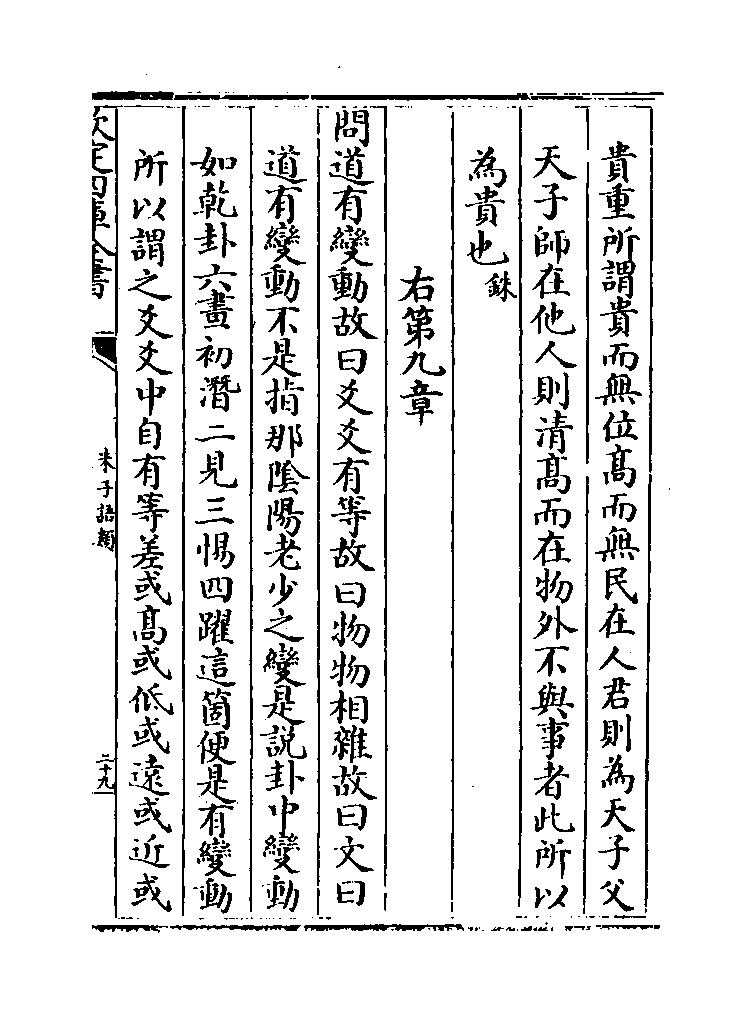 貴重所謂貴而無位髙而無民在人君則為天子父
天子師在他人則清髙而在物外不與事者此所以
為貴也銖
右第九章
問道有變動故曰爻爻有等故曰物物相雜故曰文曰
道有變動不是指那隂陽老少之變是説卦中變動
如乾卦六畫初潛二見三惕四躍這箇便是有變動
所以謂之爻爻中自有等差或髙或低或逺或近或
欽定四庫全書
朱子語類
二十九